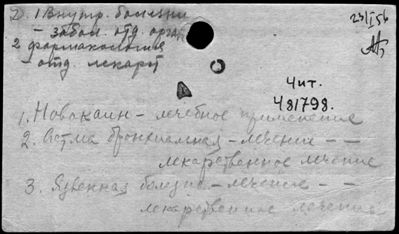 2. 1 Внутр. болезни
– забол. отд. орга
2 фармакология
отд. лекарт
23/I 56
Чит.
481798.
1. Новокаин – лечебное применение
2. Астма бронхиальная – лечение – –
лекарственное лечение
3. Язвенная болезнь – лечение – –
лекарственное лечение